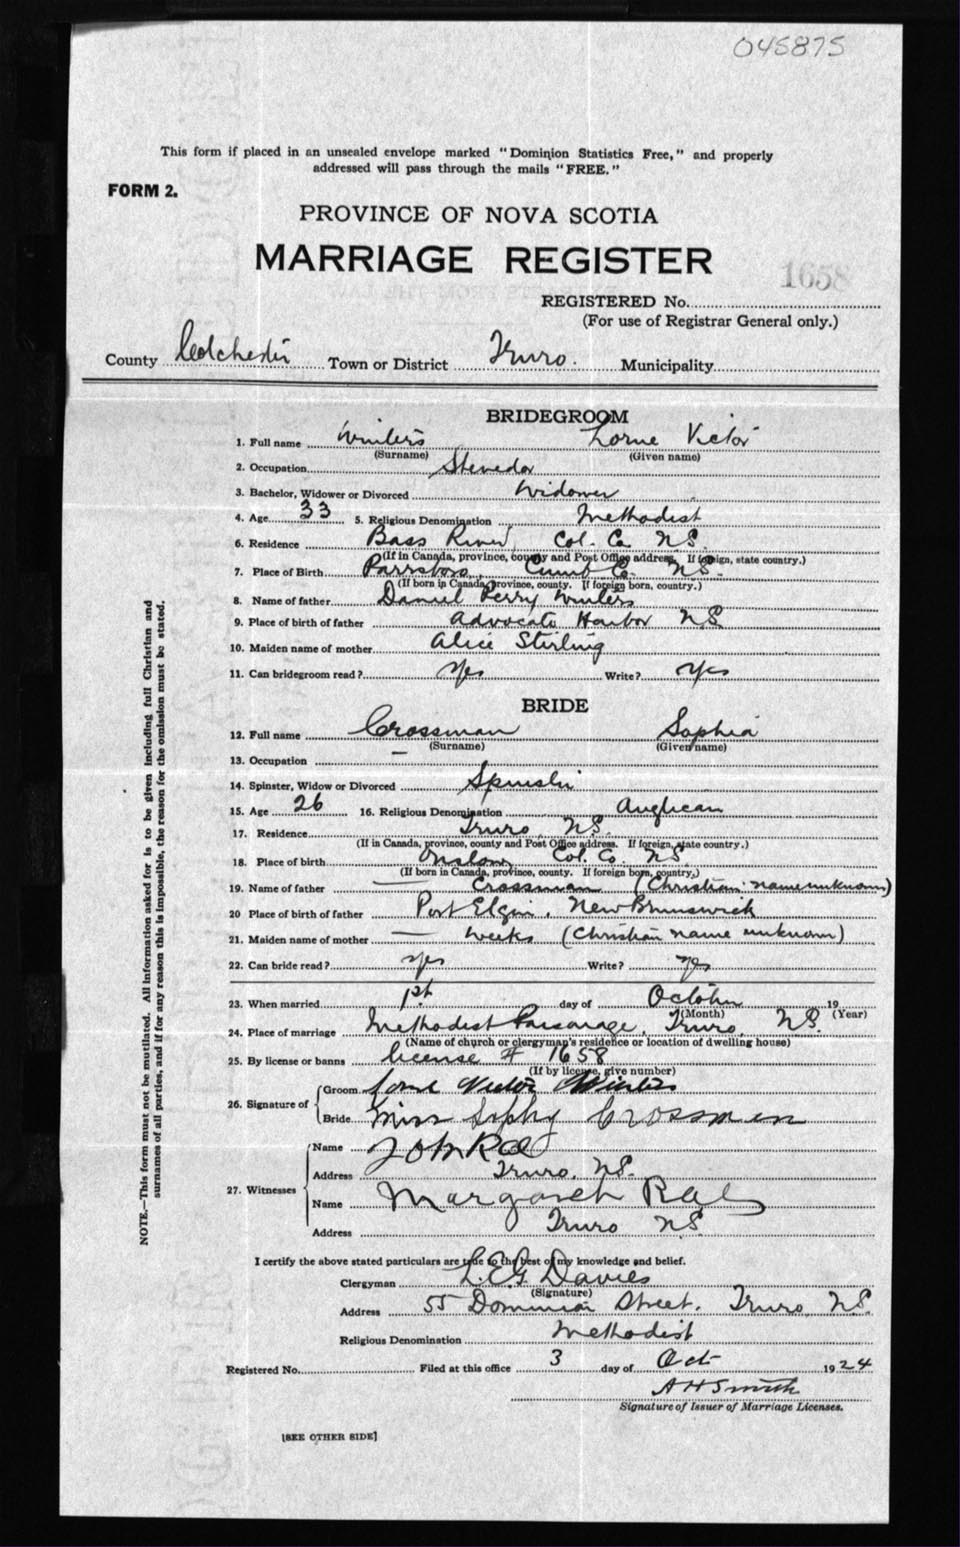 045875
This form if placed in an unsealed envelope marked "Dominion Statistics Free," and properly
addressed will pass through the mails "FREE."
FORM 2.
PROVINCE OF NOVA SCOTIA
MARRIAGE REGISTER
1658
REGISTERED No.
(For use of Registrar General only.)
County Colchester Town or District Truro. Municipality
BRIDEGROOM
1. Full name Winters Lorne Victor
(Surname) (Given name)
2. Occupation Stevedor
3. Bachelor, Widower or Divorced Widower
4. Age 33 5. Religious Denomination Methodist
6. Residence Bass River, Col. Co. N.S.
(If in Canada, province, county and Post Office address, If foreign, state country.)
7. Place of Birth Parrsboro, Cumb Co. N.S.
(If born in Canada, province, county. If foreign born, country.)
8. Name of father Daniel Perry Winters
9. Place of birth of father Advocate Harbor N.S.
10. Maiden name of mother Alice Stirling
11. Can bridegroom read? Yes Write? Yes
BRIDE
12. Full name Crossman Sophia
(Surname) (Given name)
13. Occupation —
14. Spinster, Widow or Divorced Spinster
15. Age 26 16. Religious Denomination Anglican
17. Residence Truro, N.S.
(If in Canada, province, county and Post Office address. If foreign, state country.)
18. Place of birth Onslow Col. Co. N.S.
(If born in Canada, province, county. If foreign born, country,)
19. Name of father — Crossman (Christian name unknown)
20 Place of birth of father Port Elgin, New Brunswick
21. Maiden name of mother — Weeks (Christian name unknown)
22. Can bride read? Yes Write? Yes
23. When married 1st day of October 19
(Month) (Year)
24. Place of marriage Methodist Parsonage, Truro, N.S.
(Name of church or clergyman's residence or location of dwelling house)
25. By license or banns license # 1658
(If by license, give number)
26. Signature of
Groom Lorne Victor Winters
Bride Miss Sophy Crossman
27. Witnesses
Name John Rae
Address Truro, N.S.
Name Margaret Rae
Address Truro N.S.
I certify the above stated particulars are true to the best of my knowledge and belief.
Clergyman L.E.G Davies
(Signature)
Address 55 Dominion Street. Truro N.S.
Religious Denomination Methodist
Registered No. Filed at this office 3 day of Oct 1924
A H Smith
Signature of Issuer of Marriage Licenses.
[SEE OTHER SIDE]
NOTE.—This form must not be mutilated. All information asked for is to be given including full Christian and
surnames of all parties, and if for any reason this is impossible, the reason for the omission must be stated.